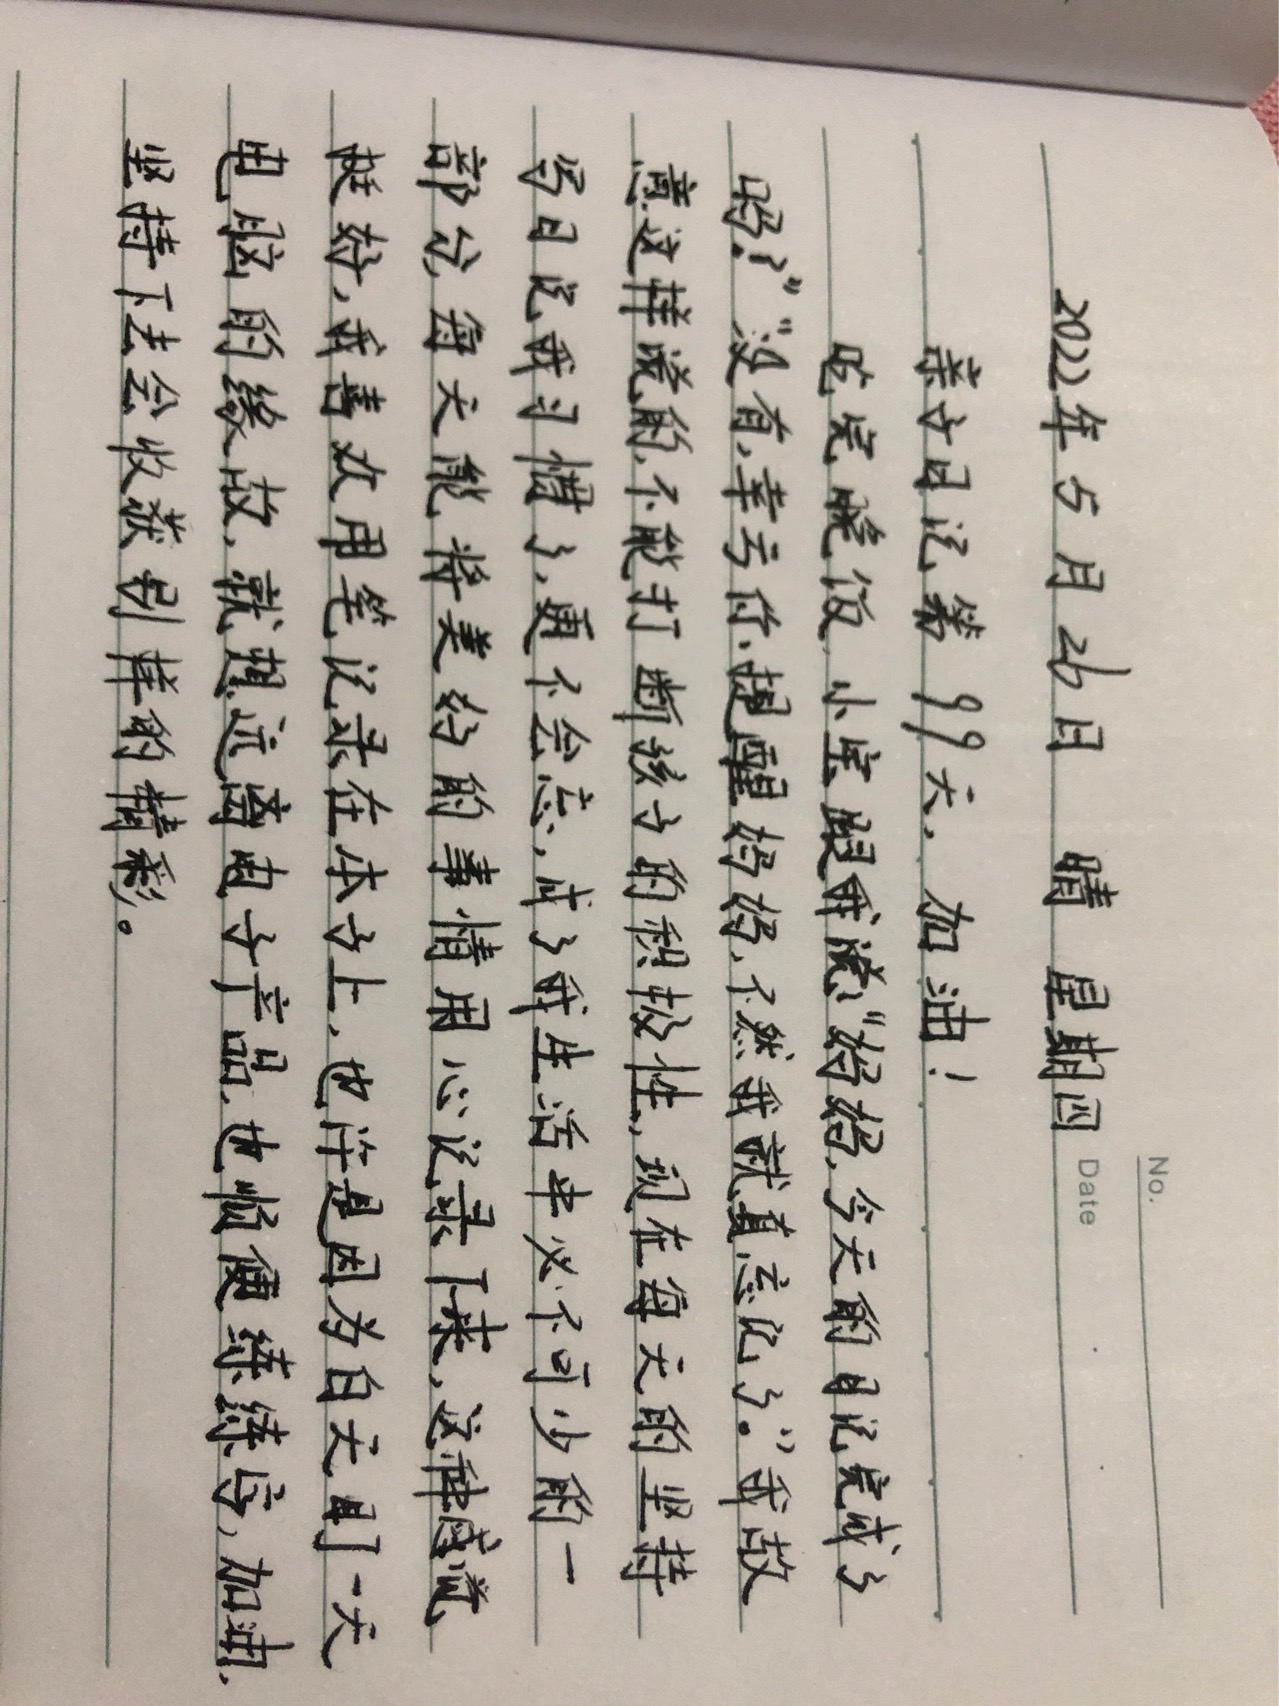 No.
Date
2022年5月26日 晴 星期四
亲子日记第99天,加油!
吃完晚饭,小宝跟我说:“妈妈,今天的日记完成了
吗?”“没有,幸亏你提醒妈妈,不然我就真忘记了。”我故
意这样说的,不能打断孩子的积极性,现在每天的坚持
写日记我习惯了,更不会忘,成了我生活中必不可少的一
部分,每天能将美好的事情用心记录下来,这种感觉
挺好,我喜欢用笔记录在本子上,也许是因为白天用一天
电脑的缘故,就想远离电子产品,也顺便练练字,加油,
坚持下去会收获别样的精彩。